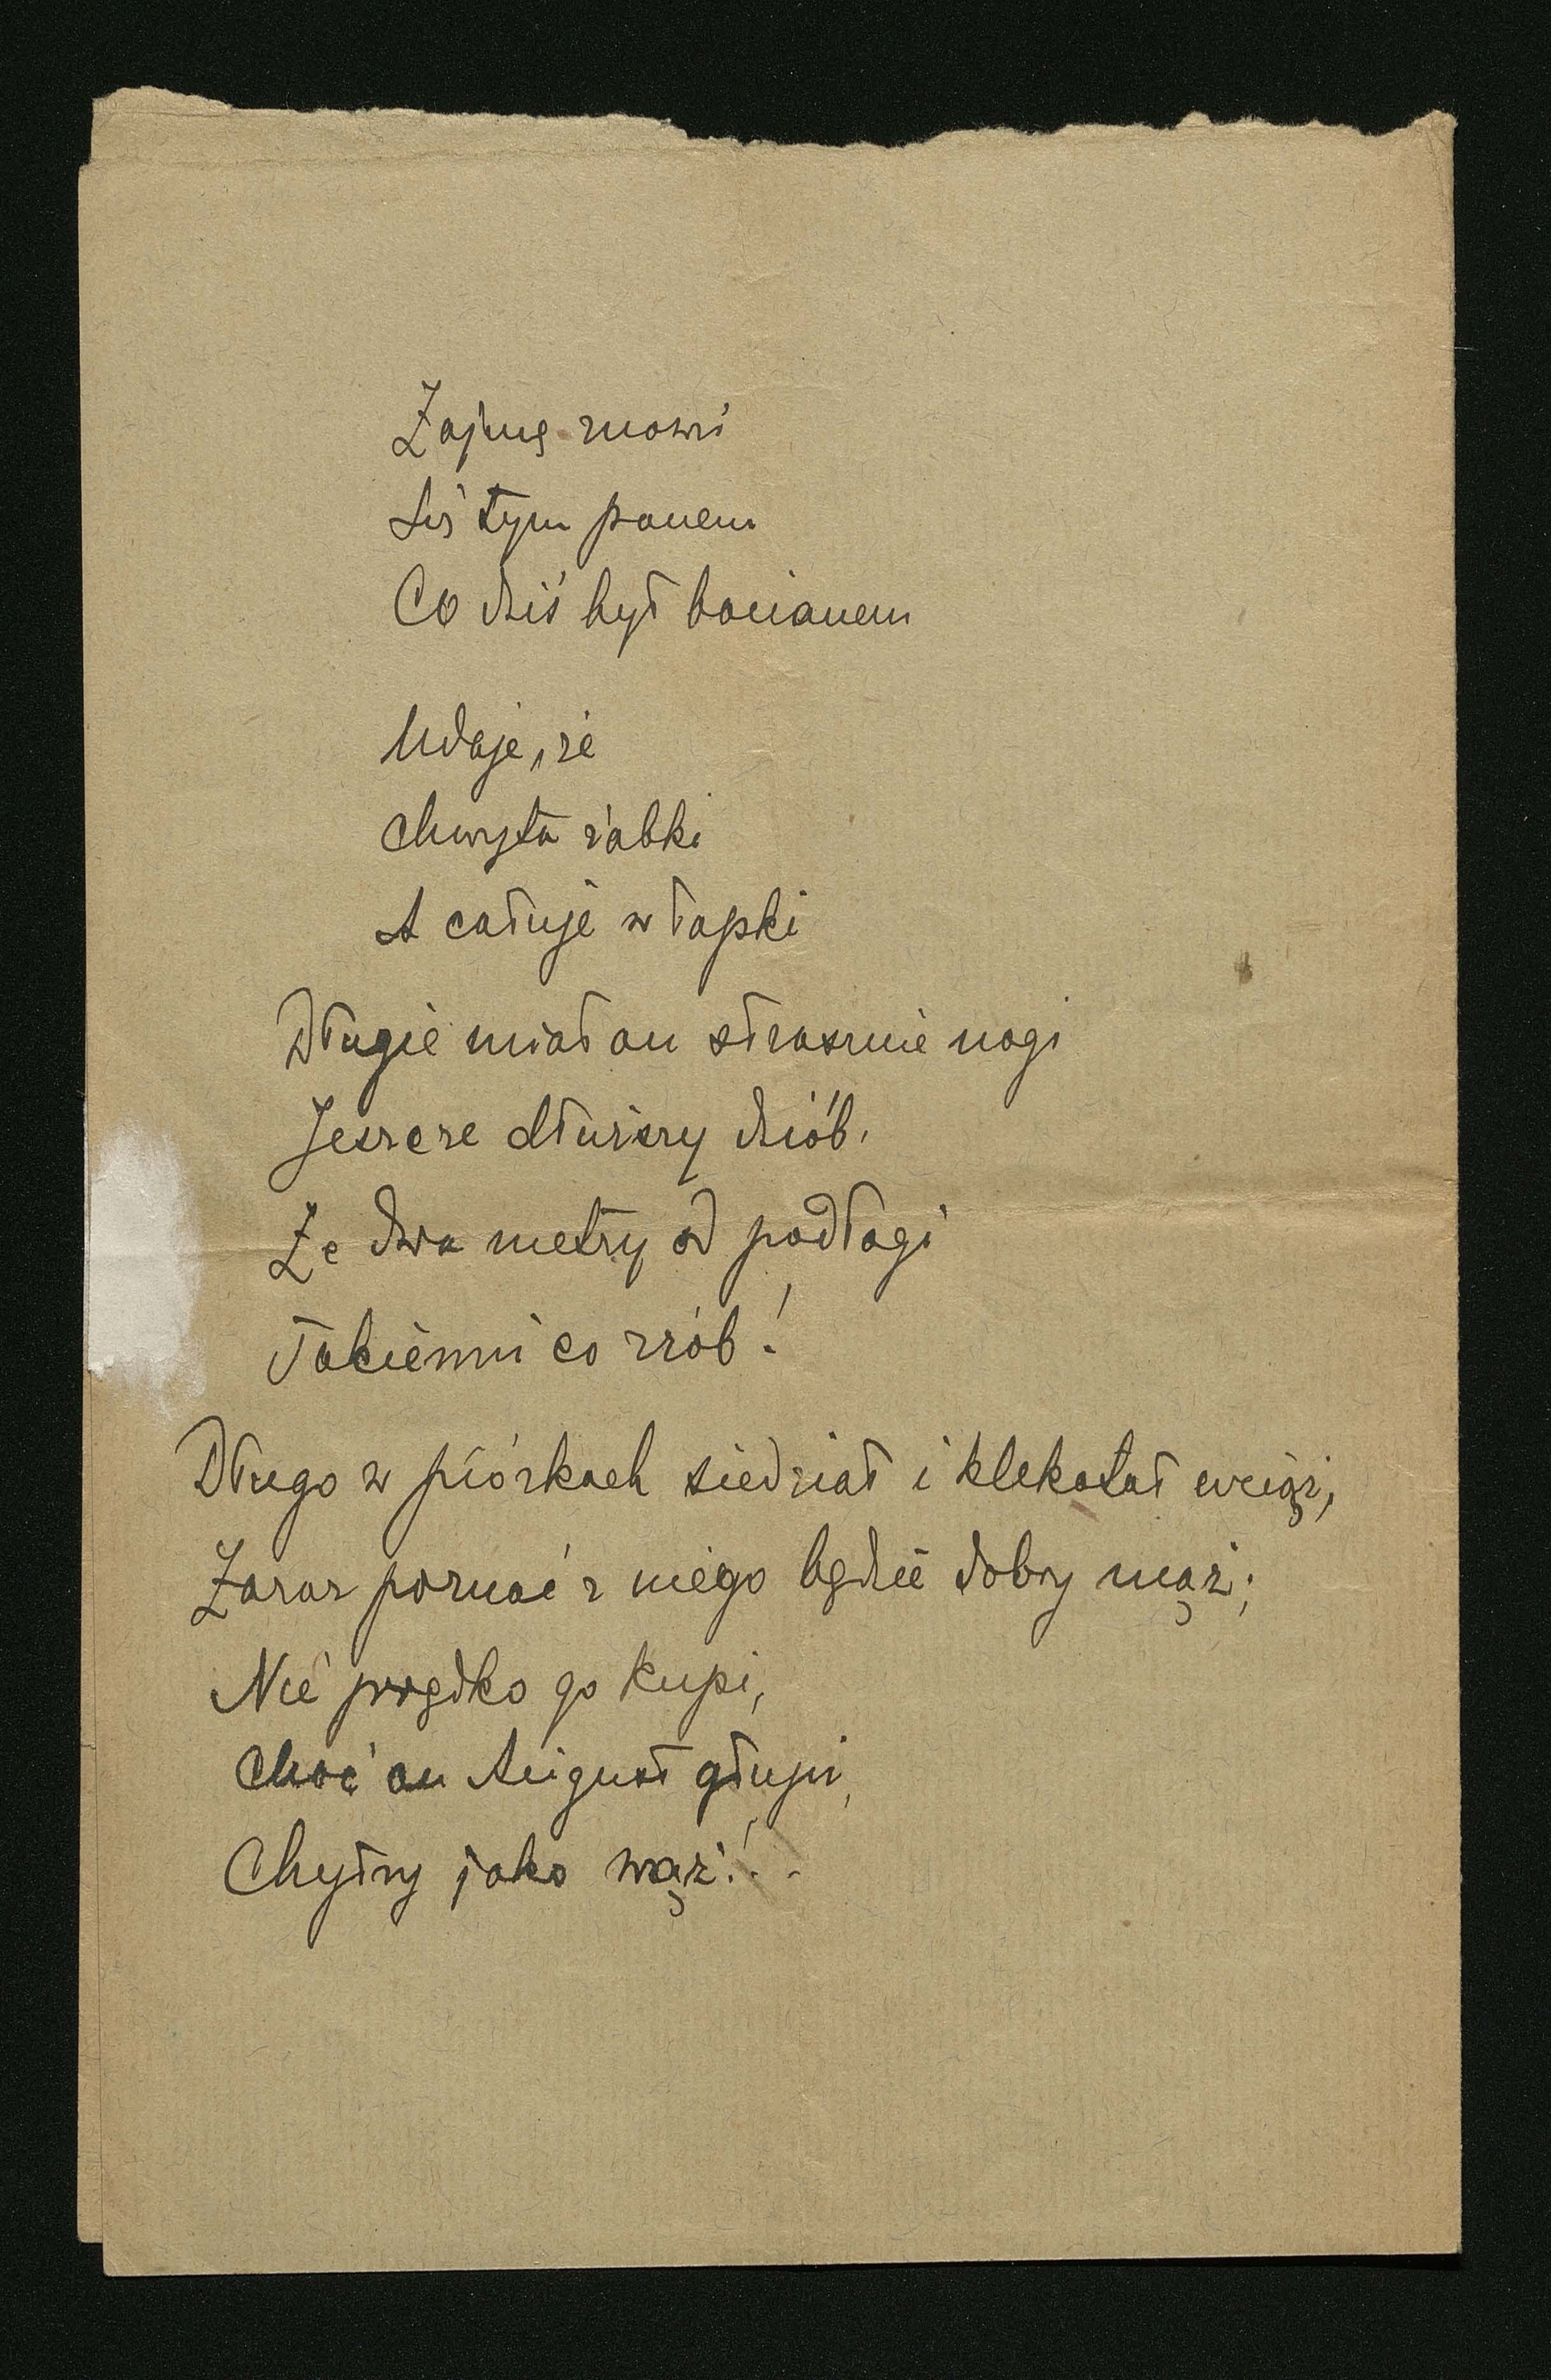 Zajmę znowu
Się tym panem
Co dziś był bocianem
Udaje, że
Chwyta żabki
A całuje w łapki
Długie miał on strasznie nogi
Jeszcze dłuższy dziób,
Ze dwa metry od podłogi
Takiemu co zrób!
Długo w piórkach siedział i klekotał wciąż,
Zaraz poznać z niego będzie dobry mąż;
Nie prędko go kupi,
Choć on August głupi,
Chytry jako wąż!..